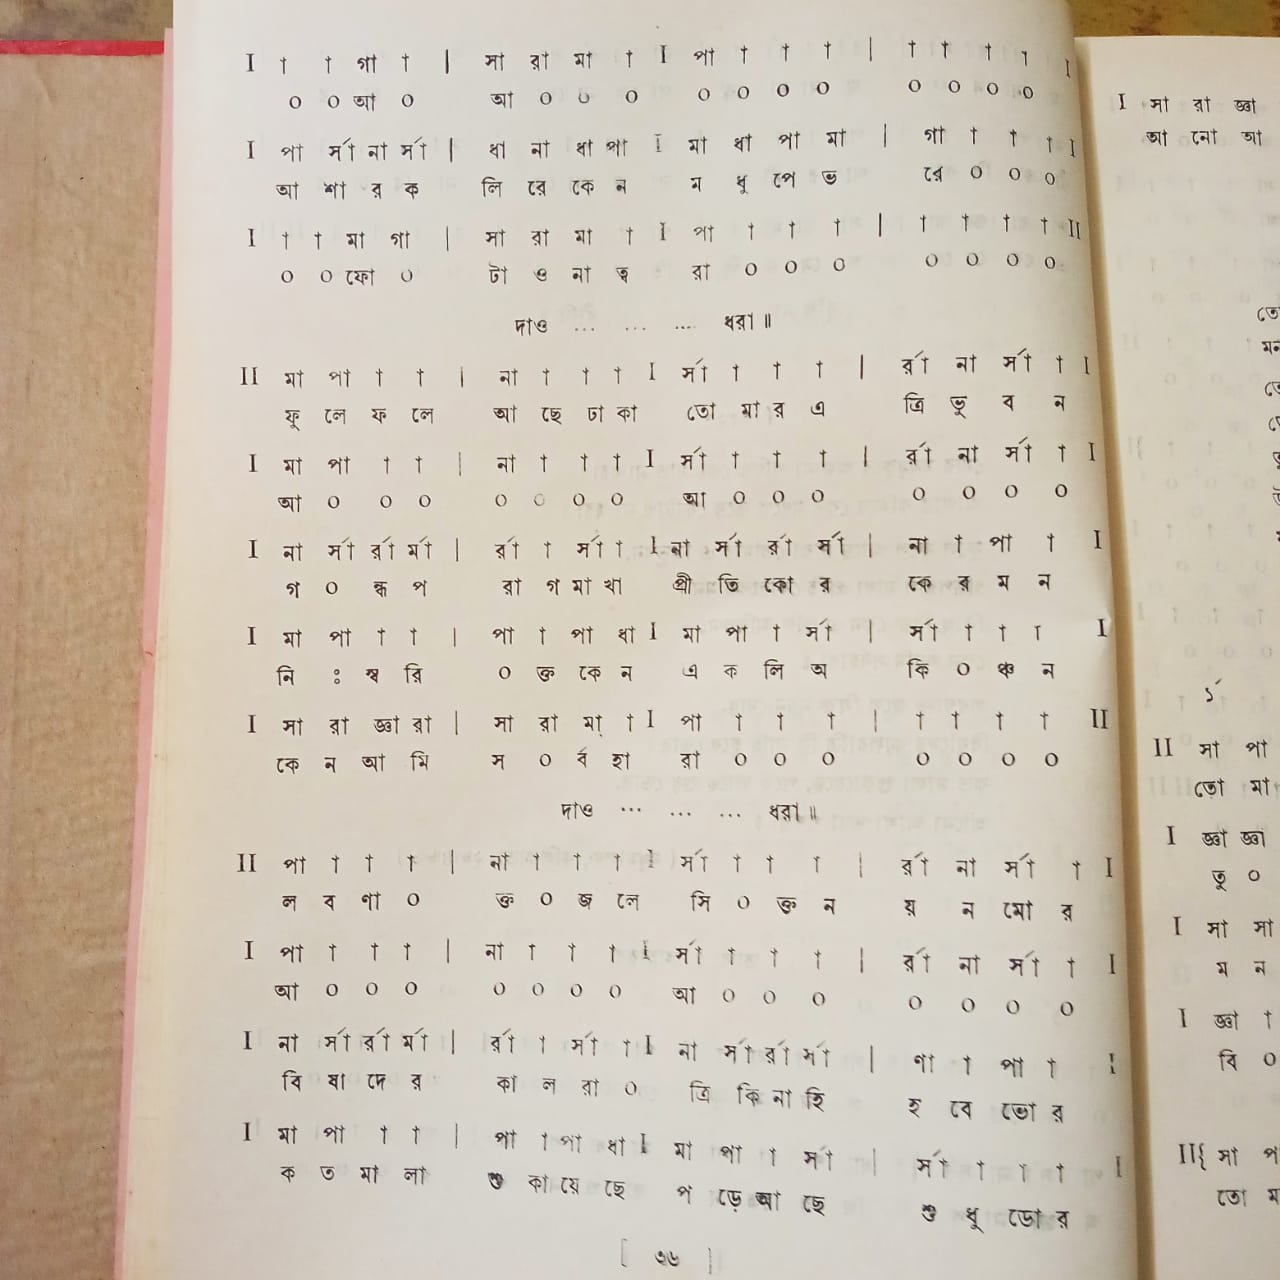 I † † গা † | সা রা মা † I পা † † † | † † † † I
০ ০ আ ০ আ ০ ০ ০ ০ ০ ০ ০ ০ ০ ০ ০
I পা র্সা না র্সা | ধা না ধা পা I মা ধা পা মা | গা † † † I
আ শা র ক লি রে কে ন ম ধু পে ভ রে ০ ০ ০
I † † মা গা | সা রা মা † I পা † † † | † † † † II
০ ০ ফো ০ টা ও না ত্ব রা ০ ০ ০ ০ ০ ০ ০
দাও ... ... .... ধরা॥
II মা পা † † | না † † † I র্সা † † † | র্রা না র্সা † I
ফু লে ফ লে আ ছে ঢা কা তো মা র এ ত্রি ভু ব ন
I মা পা † † | না † † † I র্সা † † † | র্রা না র্সা † I
আ ০ ০ ০ ০ ০ ০ ০ আ ০ ০ ০ ০ ০ ০ ০
I না র্সা র্রা র্মা | র্রা † র্সা † I না র্সা র্রা র্সা | না † পা † I
গ ০ ন্ধ প রা গ মা খা প্রী তি কো র কে র ম ন
I মা পা † † | পা † পা ধা I মা পা † র্সা | র্সা † † † I
নি ঃ স্ব রি ০ ক্ত কে ন এ ক লি অ কি ০ ঞ্চ ন
I সা রা জ্ঞা রা | সা রা মা † I পা † † † | † † † † II
কে ন আ মি স ০ র্ব হা রা ০ ০ ০ ০ ০ ০ ০
দাও ... ... ... ধরা॥
II পা † † † | না † † † I র্সা † † † | র্রা না র্সা † I
ল ব ণা ০ ক্ত ০ জ লে সি ০ ক্ত ন য় ন মো র
I পা † † † | না † † † I র্সা † † † | র্রা না র্সা † I
আ ০ ০ ০ ০ ০ ০ ০ আ ০ ০ ০ ০ ০ ০ ০
I না র্সা র্রা র্মা | র্রা † র্সা † I না র্সা র্রা র্সা | ণা † পা † I
বি ষা দে র কা ল রা ০ ত্রি কি না হি হ বে ভো র
I মা পা † † | পা † পা ধা I মা পা † র্সা | র্সা † † † I
ক ত মা লা শু কা য়ে ছে প ড়ে আ ছে শু ধু ডো র
[ ৩৬ ]
I সা রা জ্ঞা
আ নো আ
তো
মন
II সা পা
তো মা
I জ্ঞা জ্ঞা
তু ০
I সা সা
ম ন
I জ্ঞা †
বি ০
II{ সা প
তো ম